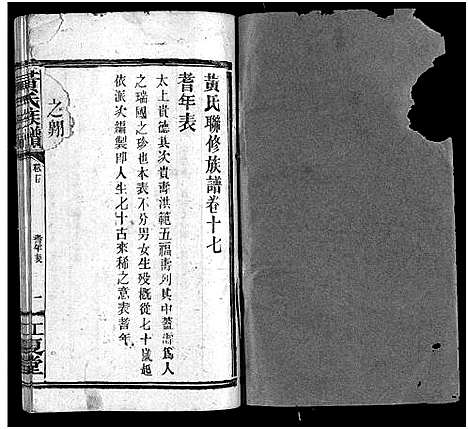 黃氏聯修族譜卷十七
耆年表
太上貴德其次貴壽洪範五福壽列其中蓋壽爲人
之瑞國之珍也本表不分男女生殁概從七十歲起
依派次編製即人生七十古來稀之意表耆年
黃氏族譜
之翔
耆年表
一
江夏堂